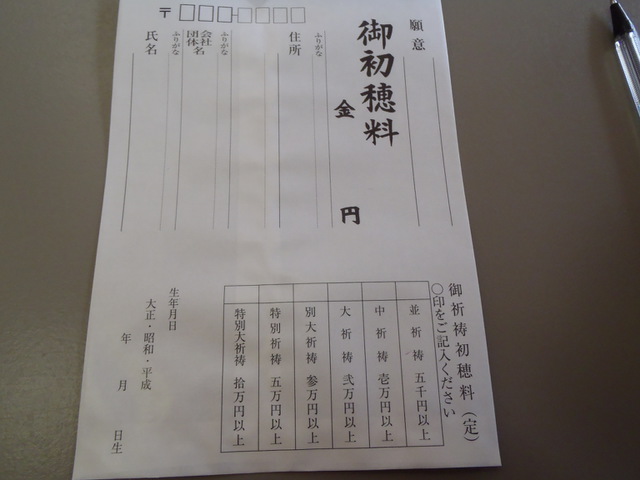 願意
御初穂料
金 円
ふりがな
住所
ふりがな
会社
団体名
ふりがな
氏名
〒
御祈祷初穂料（定）
○印をご記入ください
並祈祷 五千円以上
中祈祷 壱万円以上
大祈祷 弐万円以上
別大祈祷 参万円以上
特別祈祷 五万円以上
特別大祈祷 拾万円以上
生年月日
大正・昭和・平成
年 月 日生